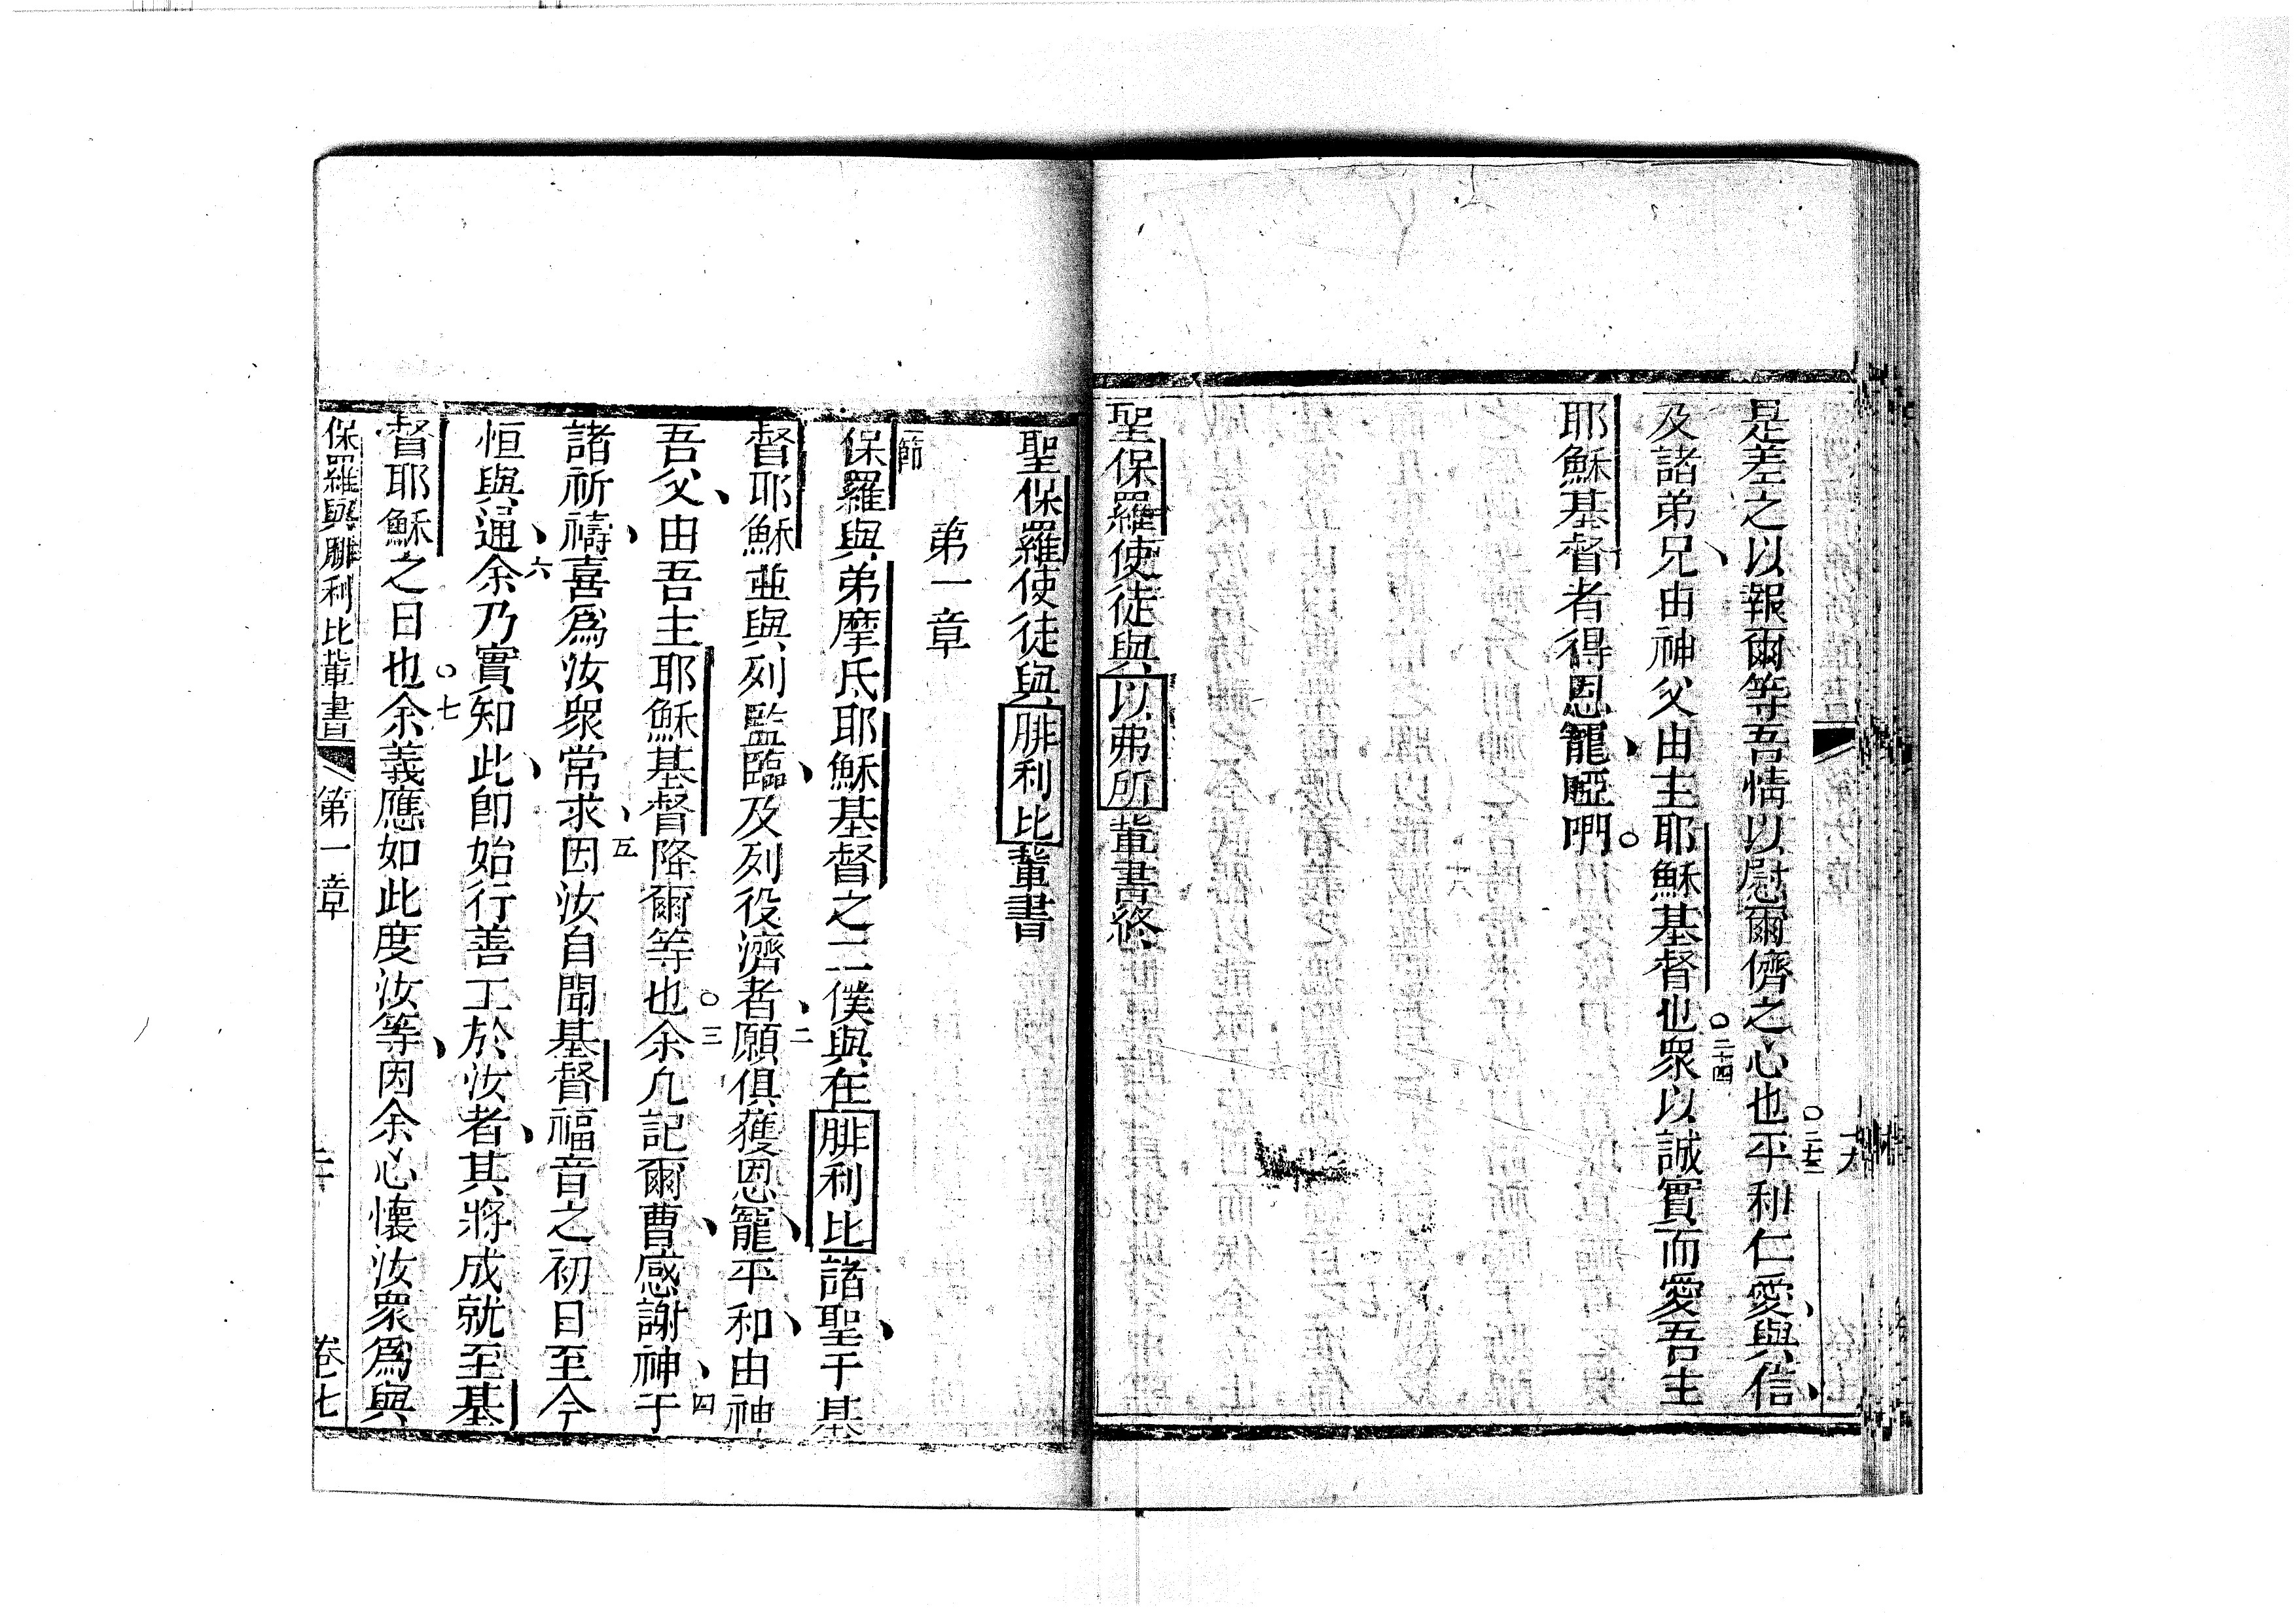 是差之以報爾等吾情以慰爾儕之心也○二十三平和仁愛、與信、
及諸弟兄、由神父由主耶穌基督也○二十四眾以誠實而愛吾主
耶穌基督者得恩寵、啞呬○
聖保羅使徒與以弗所輩書終
聖保羅使徒與腓利比輩書
第一章
一節
保羅與弟摩氐耶穌基督之二僕與在腓利比諸聖于基、
督耶穌並與列監臨、及列役濟者、二願俱獲恩寵、平和、由神
吾父、由吾主耶穌基督降爾等也○三余凡記爾曹、感謝神、四于
諸祈禱、喜為汝眾常求、五因汝自聞基督福音之初日至今
恒與通、六余乃實知此、即始行善工於汝者、其將成就至基
督耶穌之日也○七余義應如此度汝等、因余心懷汝眾為與
保羅與腓利比輩書 第一章 卷七